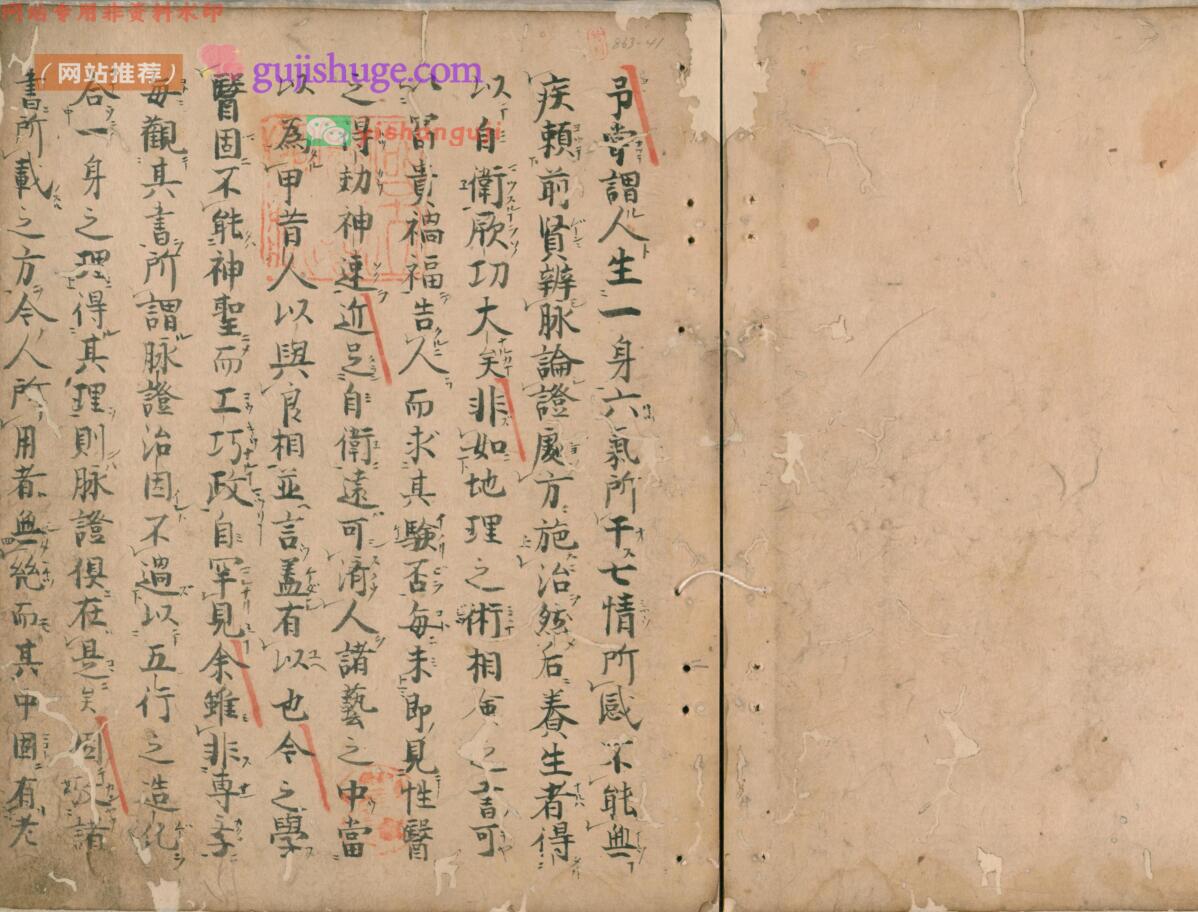 网站专用非资料水印
（网站推荐）
gujishuge.com
jishanguji
863-41
予嘗謂人生一身六氣所干七情所感不能無
疾賴前賢辨脉論證處方施治然后養生者得
以自衛厥功大矣非如地理之術相之書可
以富貴禍福告人而求其験否每未即見性醫
之得効神速近足自衛遠可濟人諸藝之中當
以為甲昔人以與良相並言盖有以也今之學
醫固不能神聖而工巧政自罕見余雖非專
每觀其書所謂脉證治因不過以五行之造化
合一身之理得其理則脉證俱在是矣因諸
書所載之方令人所用者無絶而其中固有老